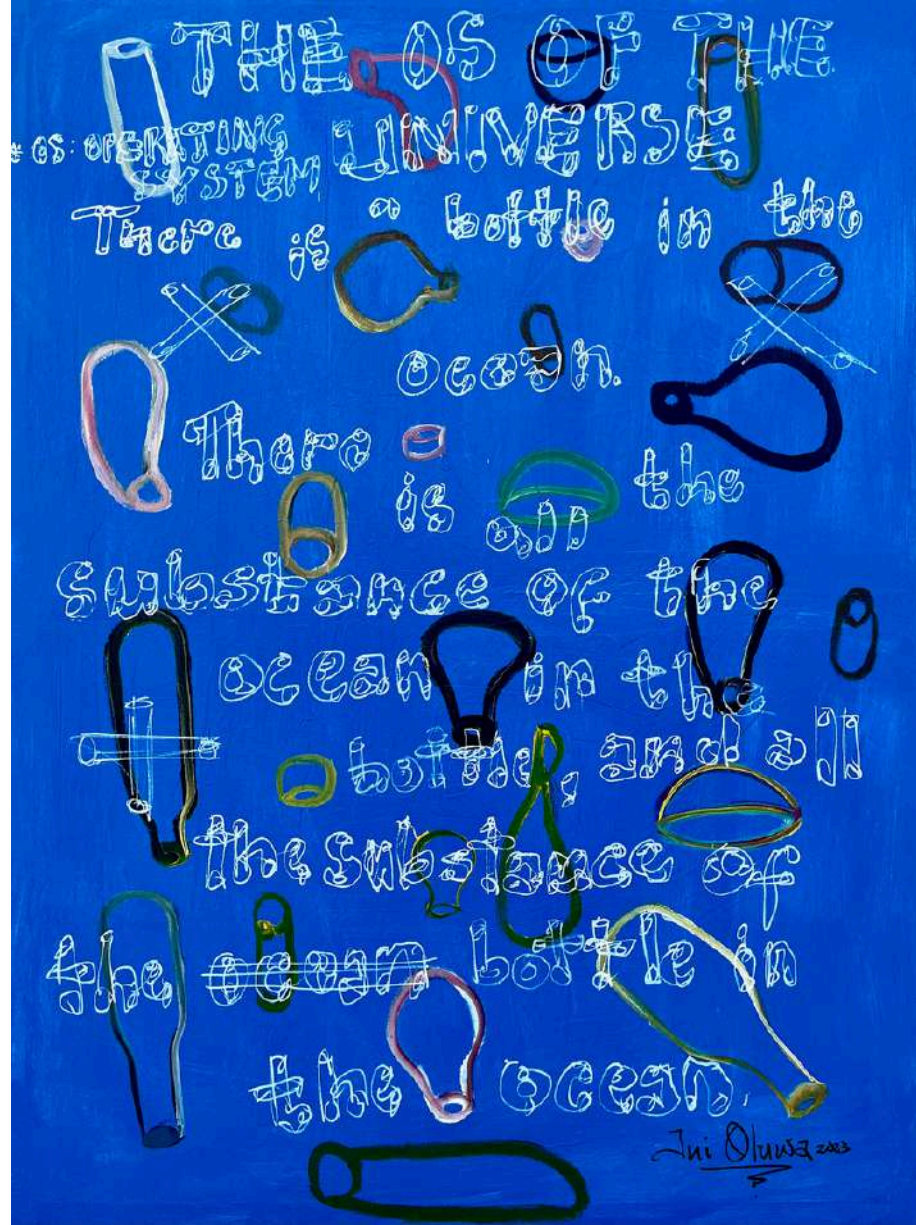 THE OS OF THE
UNIVERSE
* OS: OPERATING
SYSTEM
There is a bottle in the
ocean.
There is all the
substance of the
ocean in the
bottle, and all
the substance of
the ocean bottle in
the ocean.
Ini Oluwa 2023